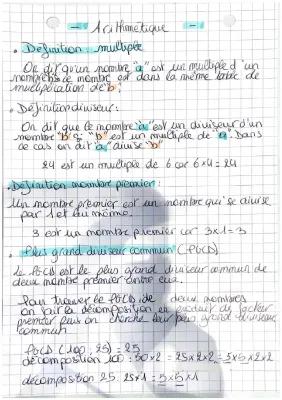 - Arithmétique -
• Définition: multiple
On dit qu'un nombre "a" est un multiple d'un
nombre si ce nombre est dans la même table de
multiplication de "b".
• Définition diviseur:
On dit que le nombre "a" est un diviseur d'un
nombre "b" si "b" est un multiple de "a". Dans
ce cas on dit "a" divise "b"
24 est un multiple de 6 car 6x4 = 24
• Définition nombre premier
Un nombre premier est un nombre qui se divise
par 1 et lui même.
3 est un nombre premier car 3x1=3
• Plus grand diviseur commun (PGCD)
Le PGCD est le plus grand diviseur commun de
deux nombre premier entre eux.
Pour trouver le PGCD de deux nombres
on fait la décomposition en produit de facteur
premier puis on cherche leur plus grand diviseur
commun
PGCD (100; 25) = 25
décomposition 100: 50x2 = 25x2x2 = 5x5x2x2
décomposition 25: 25x1 = 5x5x1